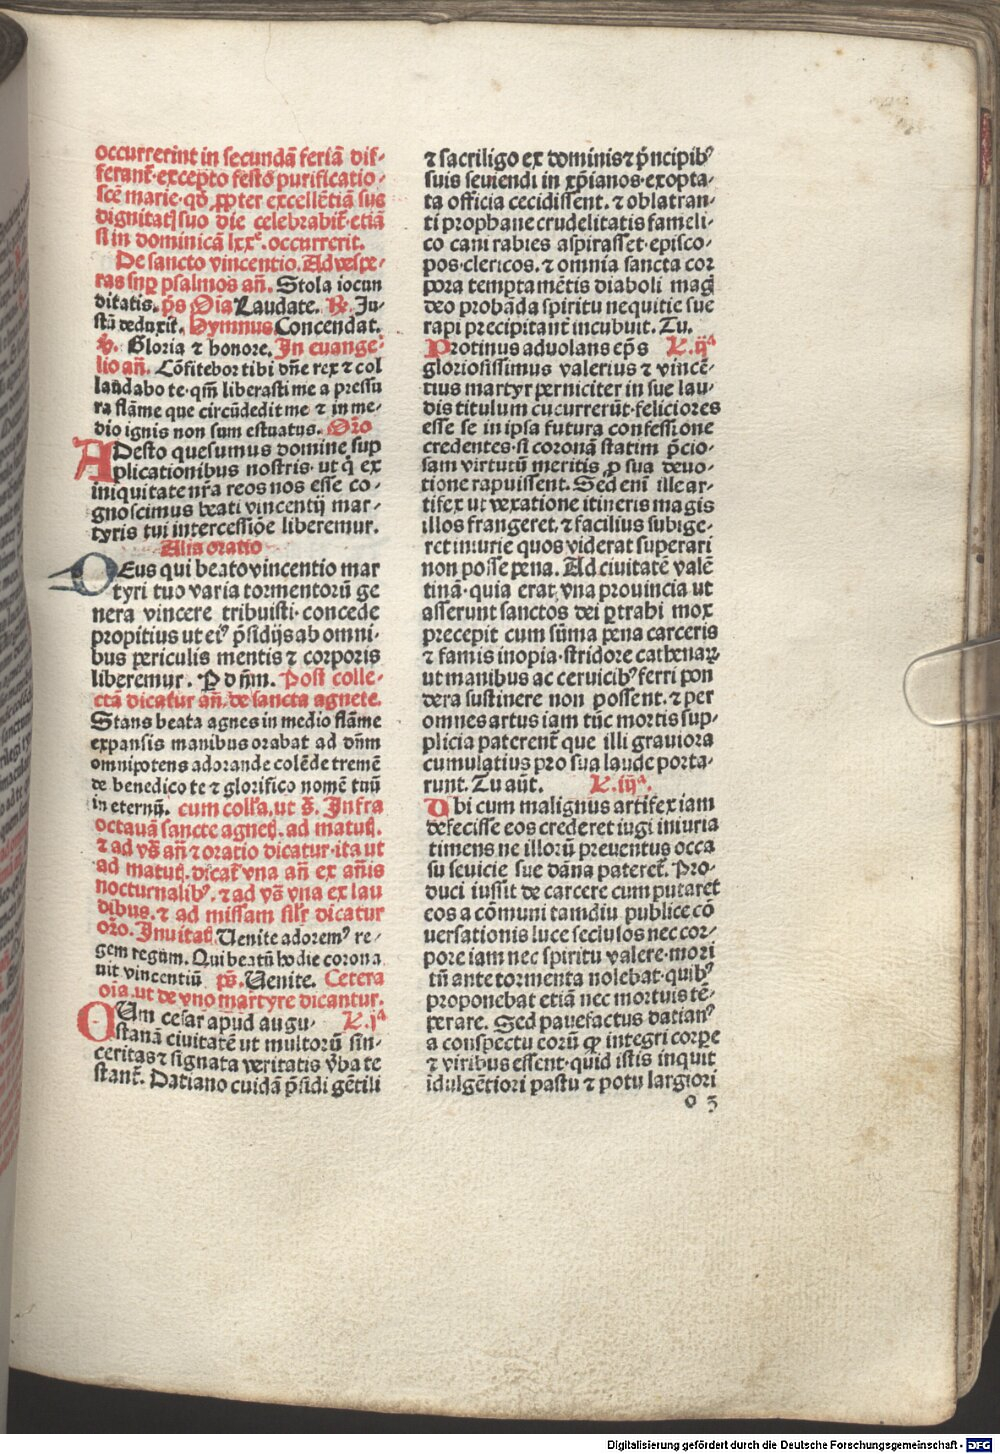 occurrerint in secundā feriā dif-
ferant᷑·excepto festo purificatio-
scē marie·qd̄ ꝓpter excellētiā sue
dignitatꝭ suo die celebrabit᷑·etiā
si in dominicā lxxᵉ. occurrerit.
De sancto vincentio. Ad vespe-
ras sup̱ psalmos añ. Stola iocun
ditatis. p̄s Oīa Laudate. ℟. Ju-
stū deduxit. Hymnus Concendat.
℣. Gloria ⁊ honore. In euange-
lio añ. Cōfitebor tibi dn̄e rex ⁊ col
laudabo te·qm̄ liberasti me a pressu
ra flāme que circūdedit me ⁊ in me-
dio ignis non sum estuatus. Oro
ADesto quesumus domine sup
plicationibus nostris· ut q̇ ex
iniquitate nr̄a reos nos esse co-
gnoscimus beati vincentij mar-
tyris tui intercessiōe liberemur.
Alia oratio
DEus qui beato vincentio mar
tyri tuo varia tormentorū ge
nera vincere tribuisti· concede
propitius ut eiꝰ p̄sidijs ab omni-
bus periculis mentis ⁊ corporis
liberemur. P dn̄m. Post colle-
ctā dicatur añ. de sancta agnete.
Stans beata agnes in medio flāme
expansis manibus orabat ad dn̄m
omnipotens adorande colēde tremē
de benedico te ⁊ glorifico nomē tuū
in eternū. cum coll'a. ut s̄. Infra
octauā sancte agnetꝭ. ad matutꝭ.
⁊ ad vs̄ añ ⁊ oratio dicatur·ita ut
ad matutꝭ. dicat᷑ vna añ ex añis
nocturnalibꝰ. ⁊ ad vs̄ vna ex lau
dibus. ⁊ ad missam sil'r dicatur
oro. Inuitatꝭ Uenite adoremꝰ re-
gem regum. Qui beatū hodie corona
uit vincentiū p̄s. Uenite. Cetera
oīa. ut de vno martyre dicantur.
CUm cesar apud augu- L. jᵃ
stanā ciuitatē ut multorū sin-
ceritas ⁊ signata veritatis v̄ba te
stant᷑. Datiano cuidā p̄sidi gētili
⁊ sacriligo ex dominis ⁊ p̄ncipibꝰ
suis seuiendi in xp̄ianos·exopta-
ta officia cecidissent. ⁊ oblatran-
ti prophane crudelitatis fameli-
co cani rabies aspirasset·episco-
pos·clericos. ⁊ omnia sancta cor
pora temptamētis diaboli maḡ
deo probāda spiritu nequitie sue
rapi precipitant᷑ incubuit. Tu.
Protinus aduolans ep̄s L. ijᵃ
gloriosissimus valerius ⁊ vincē-
tius martyr perniciter in sue lau-
dis titulum cucurrerūt·feliciores
esse se in ipsa futura confessione
credentes·si coronā statim p̄cio-
sam virtutū meritis ꝓ sua deuo-
tione rapuissent. Sed enī ille ar-
tifex ut vexatione itineris magis
illos frangeret. ⁊ facilius subige-
ret iniurie quos viderat superari
non posse pena. Ad ciuitatē valē
tinā· quia erat vna prouincia ut
asserunt sanctos dei ꝑtrahi mox
precepit cum sūma pena carceris
⁊ famis inopia·stridore cathenaꝝ
ut manibus ac ceruicibꝰ ferri pon
dera sustinere non possent. ⁊ per
omnes artus iam tūc mortis sup-
plicia paterent᷑ que illi grauiora
cumulatius pro sua laude porta-
runt. Tu aūt. L. iijᵃ.
Ubi cum malignus artifex iam
defecisse eos crederet iugi iniuria
timens ne illorū preuentus occa
su seuicie sue dāna pateret᷑. Pro-
duci iussit de carcere cum putaret
eos a cōmuni tamdiu publice cō
uersationis luce seclusos nec cor-
pore iam nec spiritu valere·mori
tn̄ ante tormenta nolebat·quibꝰ
proponebat etiā nec mortuis tē-
perare. Sed pauefactus datianꝰ
a conspectu eorū ꝙ integri corpe
⁊ viribus essent·quid istis inquit
īdulgētiori pastu ⁊ potu largiori
o 3
Digitalisierung gefördert durch die Deutsche Forschungsgemeinschaft - DFG